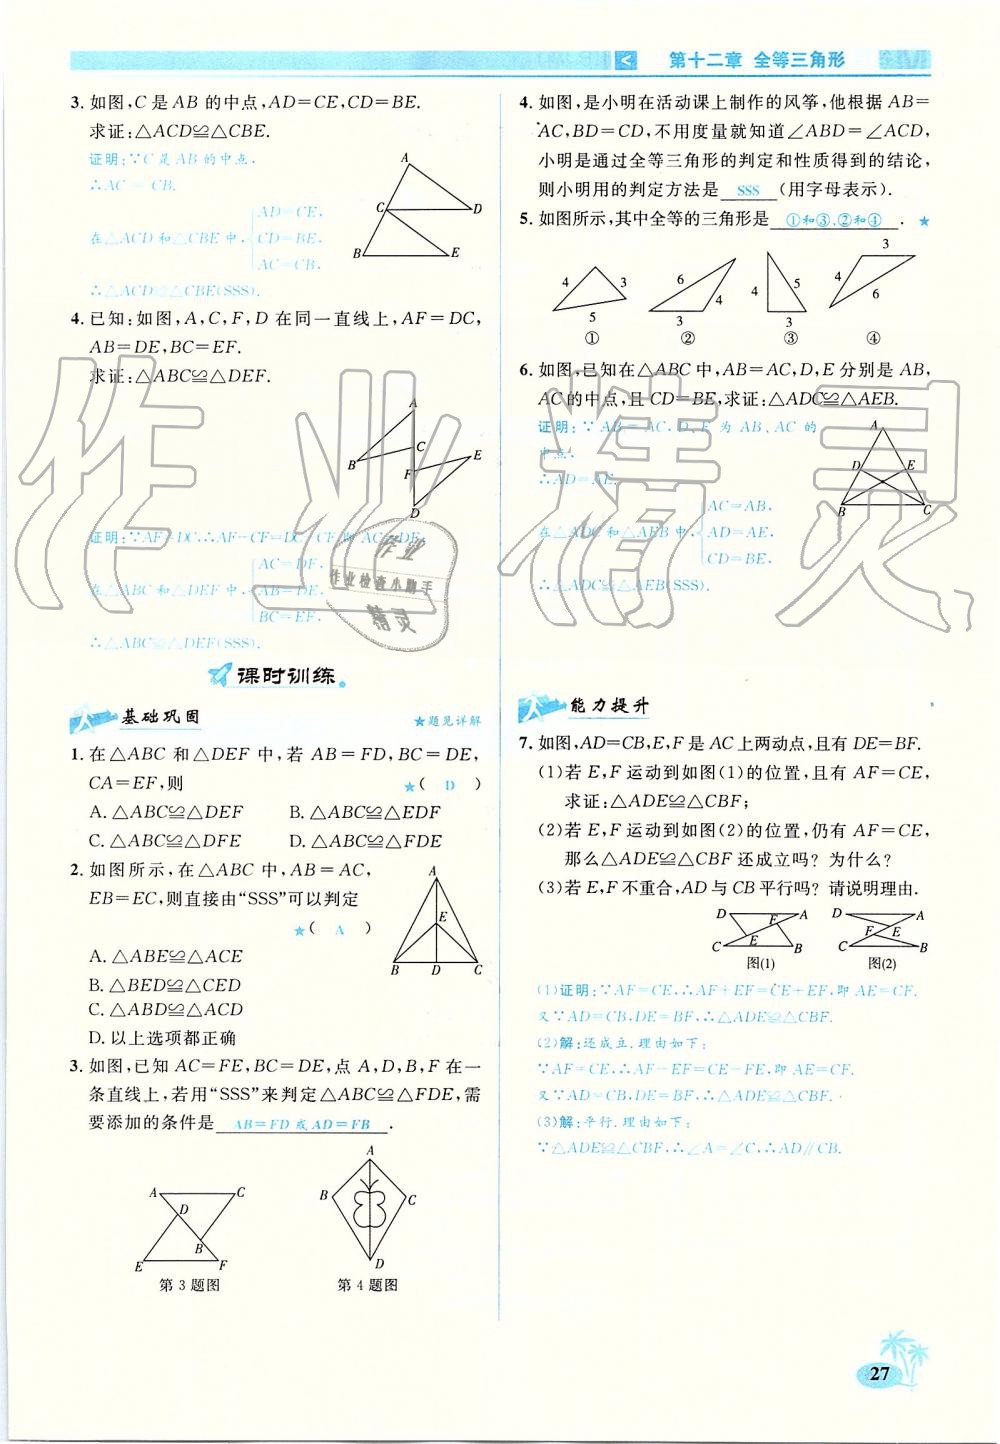 第十二章 全等三角形
3. 如图,C是AB的中点,AD=CE,CD=BE.
求证:△ACD≌△CBE.
证明:∵C是AB的中点,
∴AC=CB.
在△ACD和△CBE中,
AD=CE,
CD=BE,
AC=CB.
∴△ACD≌△CBE(SSS).
A
C
D
B
E
4. 已知:如图,A,C,F,D在同一直线上,AF=DC,
AB=DE,BC=EF.
求证:△ABC≌△DEF.
A
C
B
F
E
D
证明:∵AF=DC,∴AF-CF=DC-CF,即AC=DF.
在△ABC和△DEF中,
AC=DF,
AB=DE,
BC=EF,
∴△ABC≌△DEF(SSS).
课时训练
基础巩固
★题见详解
1. 在△ABC和△DEF中,若AB=FD,BC=DE,
CA=EF,则 ★( D )
A. △ABC≌△DEF B. △ABC≌△EDF
C. △ABC≌△DFE D. △ABC≌△FDE
2. 如图所示,在△ABC中,AB=AC,
EB=EC,则直接由“SSS”可以判定
★( A )
A. △ABE≌△ACE
B. △BED≌△CED
C. △ABD≌△ACD
D. 以上选项都正确
A
E
B D C
3. 如图,已知AC=FE,BC=DE,点A,D,B,F在一
条直线上,若用“SSS”来判定△ABC≌△FDE,需
要添加的条件是 AB=FD或AD=FB .
A C
D
B
E F
第3题图
A
B C
D
第4题图
4. 如图,是小明在活动课上制作的风筝,他根据AB=
AC,BD=CD,不用度量就知道∠ABD=∠ACD,
小明是通过全等三角形的判定和性质得到的结论,
则小明用的判定方法是 SSS (用字母表示).
5. 如图所示,其中全等的三角形是 ①和③,②和④ . ★
4 3 5 ①
6 4 3 ②
4 5 3 ③
3 4 6 ④
6. 如图,已知在△ABC中,AB=AC,D,E分别是AB,
AC的中点,且CD=BE,求证:△ADC≌△AEB.
证明:∵AB=AC,D、E为AB、AC的
中点,
∴AD=AE.
在△ADC和△AEB中,
AC=AB,
AD=AE,
CD=BE.
∴△ADC≌△AEB(SSS).
A
D E
B C
能力提升
7. 如图,AD=CB,E,F是AC上两动点,且有DE=BF.
(1)若E,F运动到如图(1)的位置,且有AF=CE,
求证:△ADE≌△CBF;
(2)若E,F运动到如图(2)的位置,仍有AF=CE,
那么△ADE≌△CBF还成立吗?为什么?
(3)若E,F不重合,AD与CB平行吗?请说明理由.
D A
F
E
C B
图(1)
D A
F E
C B
图(2)
(1)证明:∵AF=CE,∴AF+EF=CE+EF,即AE=CF.
又∵AD=CB,DE=BF,∴△ADE≌△CBF.
(2)解:还成立.理由如下:
∵AF=CE,∴AF-EF=CE-EF,即AE=CF.
又∵AD=CB,DE=BF,∴△ADE≌△CBF.
(3)解:平行.理由如下:
∵△ADE≌△CBF,∴∠A=∠C,∴AD∥CB.
作业精灵
作业
作业检查小助手
精灵
27